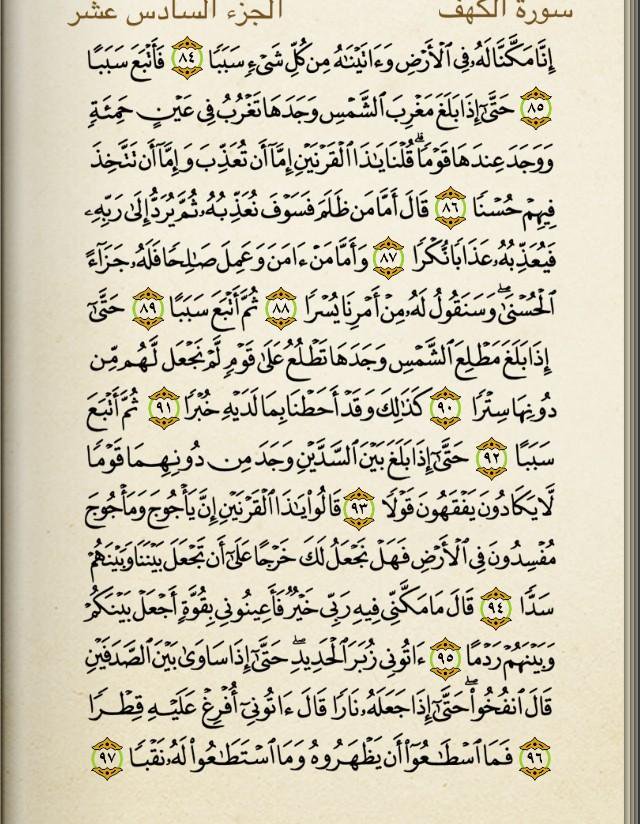 سورة الكهف الجزء السادس عشر
إِنَّا مَكَّنَّا لَهُۥ فِى ٱلْأَرْضِ وَءَاتَيْنَٰهُ مِن كُلِّ شَىْءٍ سَبَبًا ٨٤ فَأَتْبَعَ سَبَبًا
٨٥ حَتَّىٰٓ إِذَا بَلَغَ مَغْرِبَ ٱلشَّمْسِ وَجَدَهَا تَغْرُبُ فِى عَيْنٍ حَمِئَةٍ
وَوَجَدَ عِندَهَا قَوْمًا ۗ قُلْنَا يَٰذَا ٱلْقَرْنَيْنِ إِمَّآ أَن تُعَذِّبَ وَإِمَّآ أَن تَتَّخِذَ
فِيهِمْ حُسْنًا ٨٦ قَالَ أَمَّا مَن ظَلَمَ فَسَوْفَ نُعَذِّبُهُۥ ثُمَّ يُرَدُّ إِلَىٰ رَبِّهِۦ
فَيُعَذِّبُهُۥ عَذَابًا نُّكْرًا ٨٧ وَأَمَّا مَنْ ءَامَنَ وَعَمِلَ صَٰلِحًا فَلَهُۥ جَزَآءً
ٱلْحُسْنَىٰ ۖ وَسَنَقُولُ لَهُۥ مِنْ أَمْرِنَا يُسْرًا ٨٨ ثُمَّ أَتْبَعَ سَبَبًا ٨٩ حَتَّىٰٓ
إِذَا بَلَغَ مَطْلِعَ ٱلشَّمْسِ وَجَدَهَا تَطْلُعُ عَلَىٰ قَوْمٍ لَّمْ نَجْعَل لَّهُم مِّن
دُونِهَا سِتْرًا ٩٠ كَذَٰلِكَ وَقَدْ أَحَطْنَا بِمَا لَدَيْهِ خُبْرًا ٩١ ثُمَّ أَتْبَعَ
سَبَبًا ٩٢ حَتَّىٰٓ إِذَا بَلَغَ بَيْنَ ٱلسَّدَّيْنِ وَجَدَ مِن دُونِهِمَا قَوْمًا
لَّا يَكَادُونَ يَفْقَهُونَ قَوْلًا ٩٣ قَالُوا۟ يَٰذَا ٱلْقَرْنَيْنِ إِنَّ يَأْجُوجَ وَمَأْجُوجَ
مُفْسِدُونَ فِى ٱلْأَرْضِ فَهَلْ نَجْعَلُ لَكَ خَرْجًا عَلَىٰٓ أَن تَجْعَلَ بَيْنَنَا وَبَيْنَهُمْ
سَدًّا ٩٤ قَالَ مَا مَكَّنِّى فِيهِ رَبِّى خَيْرٌ فَأَعِينُونِى بِقُوَّةٍ أَجْعَلْ بَيْنَكُمْ
وَبَيْنَهُمْ رَدْمًا ٩٥ ءَاتُونِى زُبَرَ ٱلْحَدِيدِ ۖ حَتَّىٰٓ إِذَا سَاوَىٰ بَيْنَ ٱلصَّدَفَيْنِ
قَالَ ٱنفُخُوا۟ ۖ حَتَّىٰٓ إِذَا جَعَلَهُۥ نَارًا قَالَ ءَاتُونِىٓ أُفْرِغْ عَلَيْهِ قِطْرًا
٩٦ فَمَا ٱسْطَٰعُوٓا۟ أَن يَظْهَرُوهُ وَمَا ٱسْتَطَٰعُوا۟ لَهُۥ نَقْبًا ٩٧